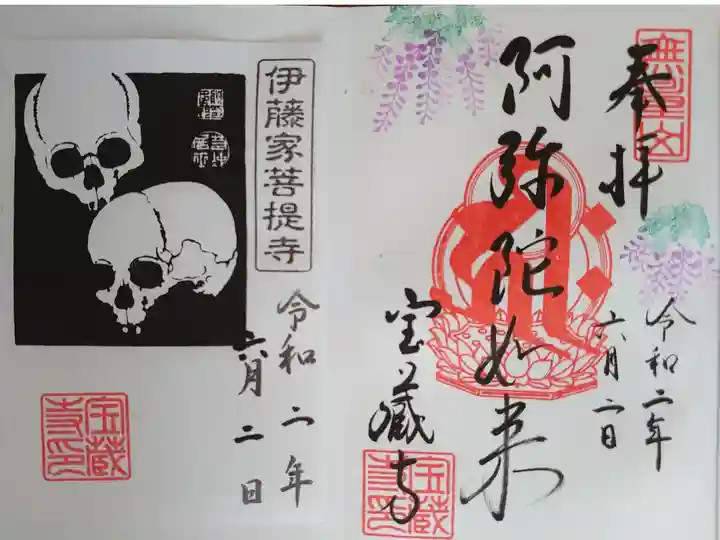 奉拝
令和二年
六月二日
阿弥陀如来
宝蔵寺
無量山
宝蔵寺印
伊藤家菩提寺
令和二年
六月二日
宝蔵寺印